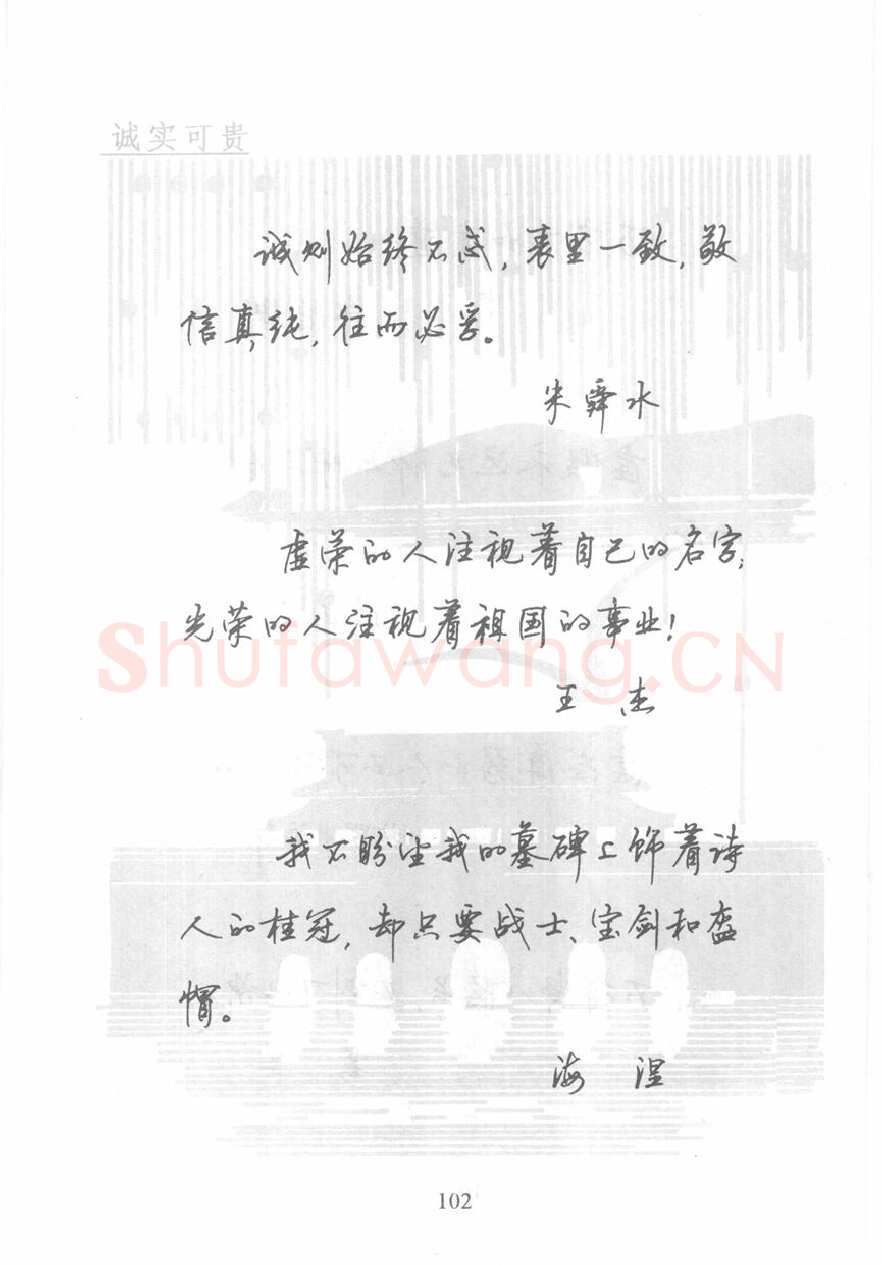 诚实可贵
诚则始终不忒,表里一致,敬
信真纯,往而必孚。
朱舜水
虚荣的人注视着自己的名字;
光荣的人注视着祖国的事业!
Shufawang.CN
王 杰
我不盼望我的墓碑上饰着诗
人的桂冠,却只要战士、宝剑和盔
帽。
海 涅
102